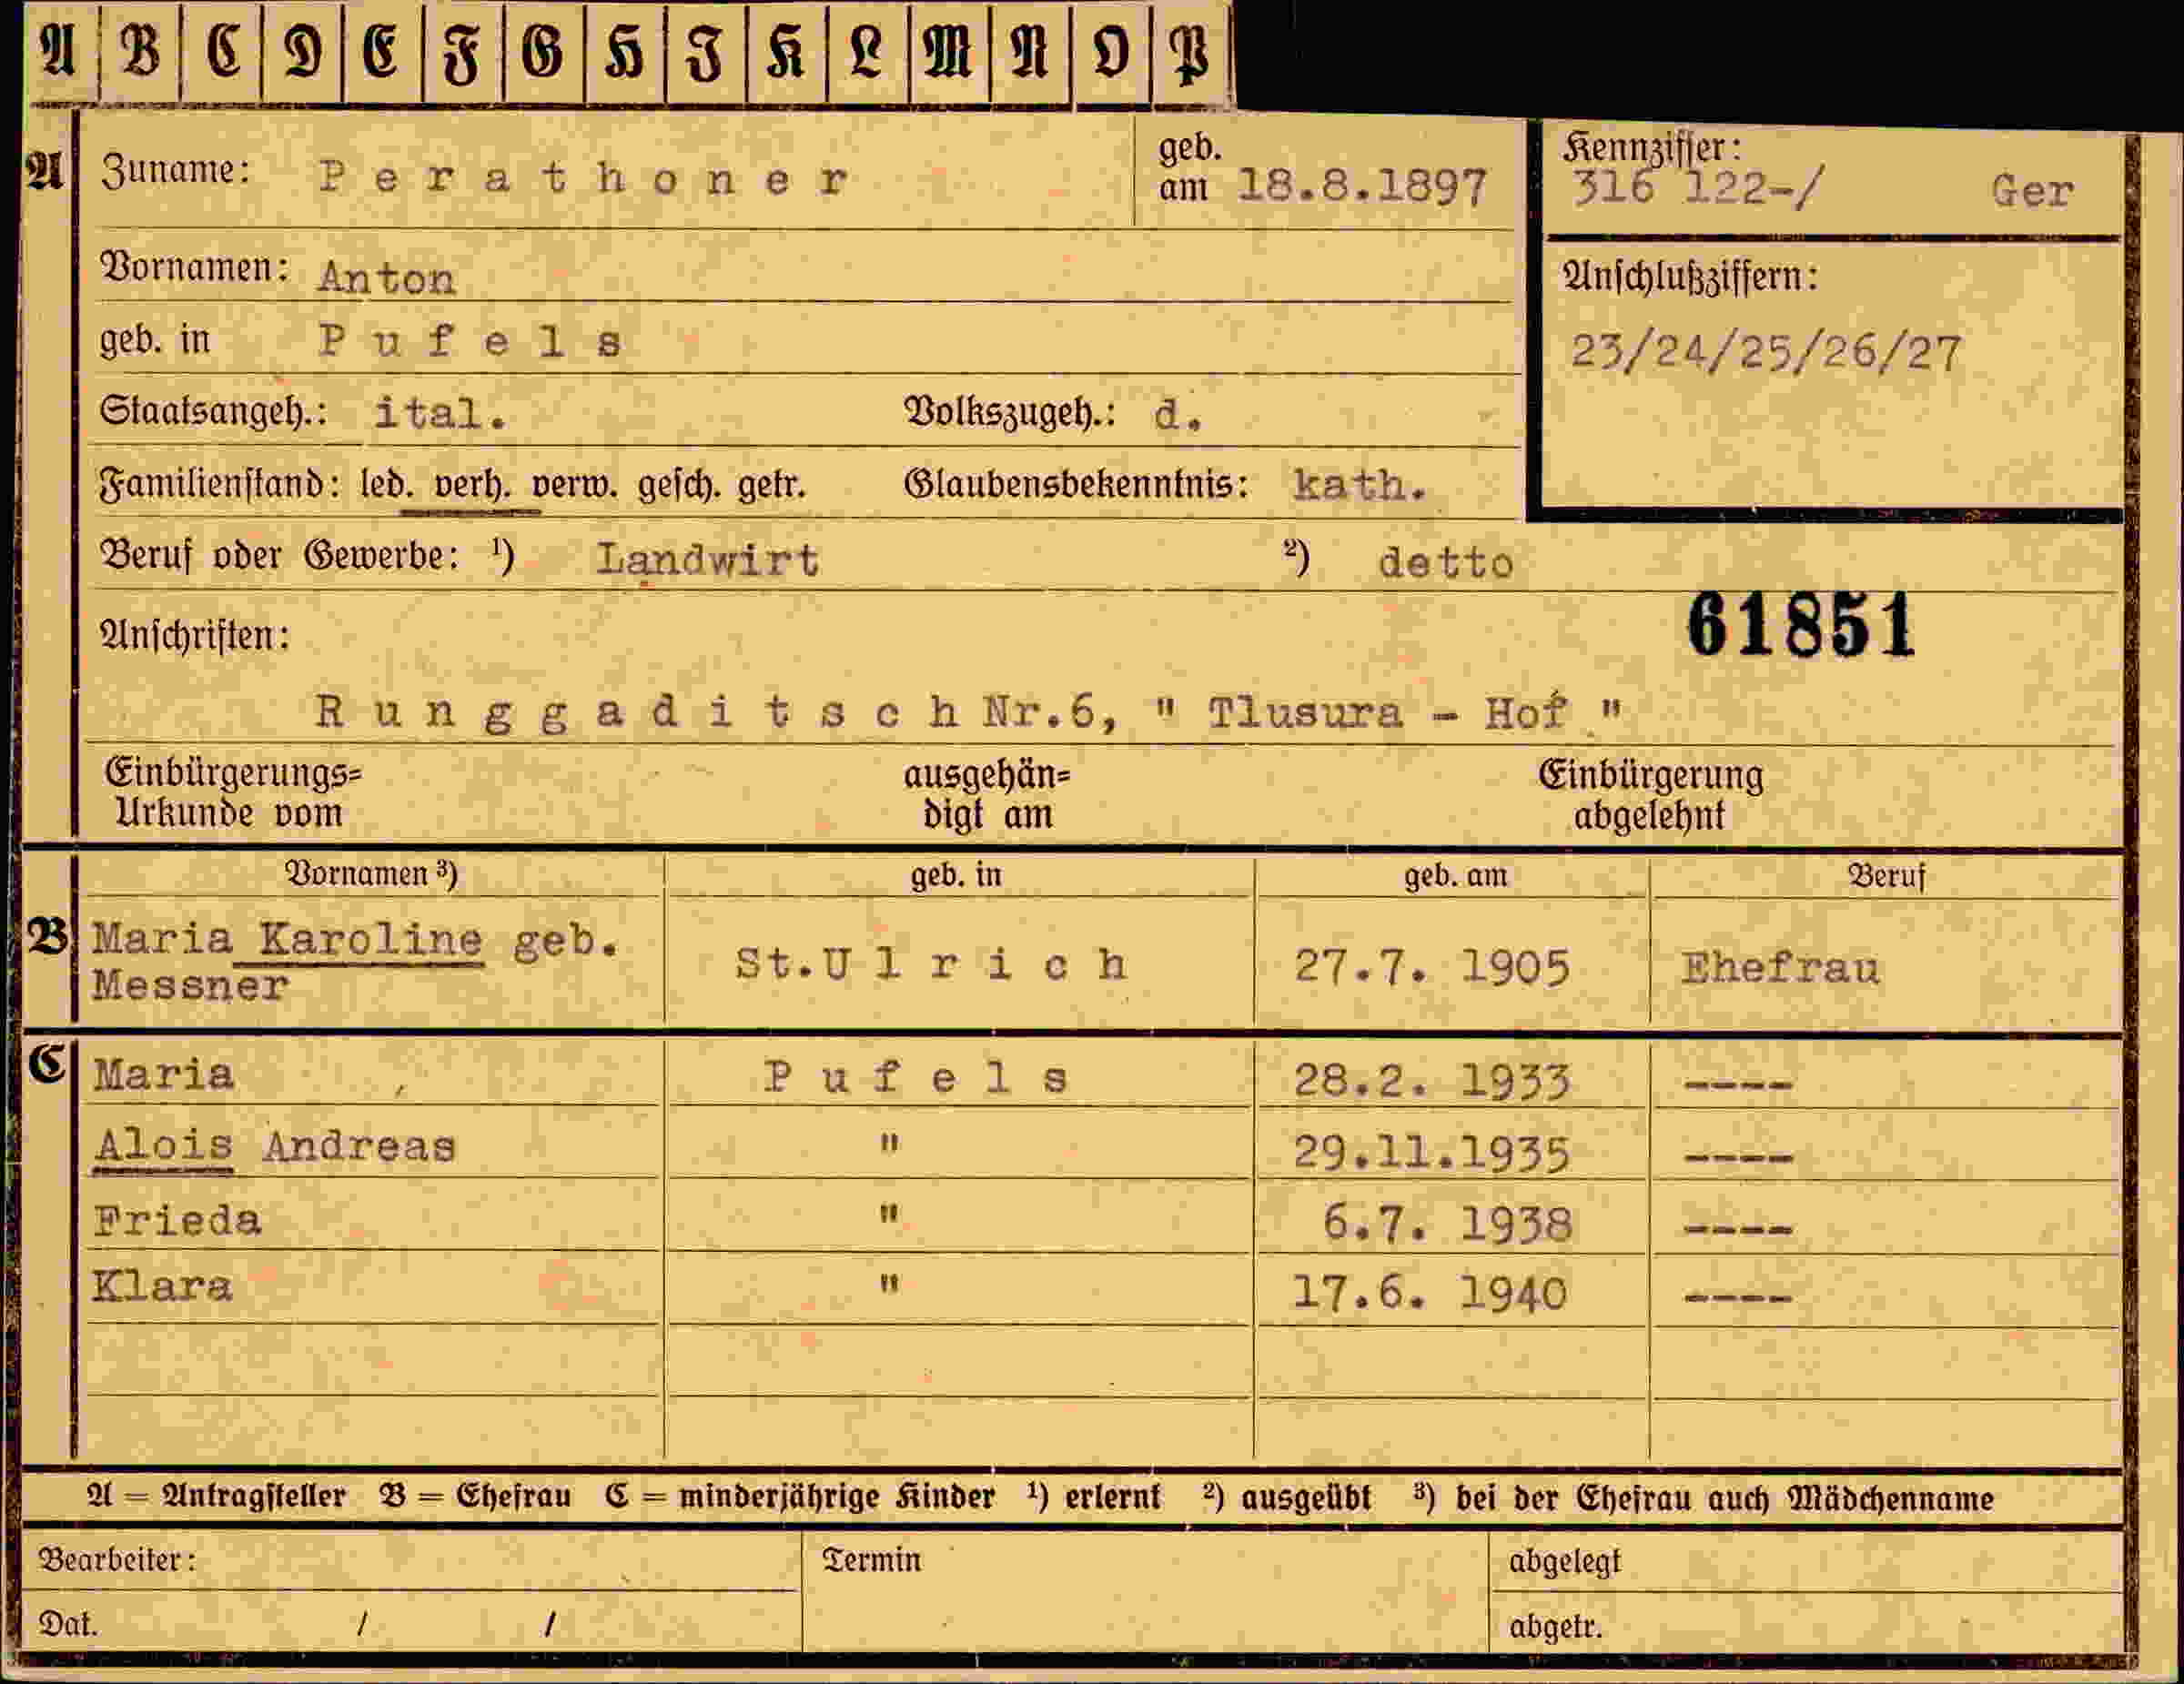 A B C D E F G H I K L M N O P
A Zuname: Perathoner geb. am 18.8.1897 Kennziffer: 316 122-/ Ger
Vornamen: Anton Anschlußziffern:
geb. in Pufels 23/24/25/26/27
Staatsangeh.: ital. Volkszugeh.: d.
Familienstand: led. verh. verw. gesch. getr. Glaubensbekenntnis: kath.
Beruf oder Gewerbe: ¹) Landwirt ²) detto
61851
Anschriften:
Runggaditsch Nr.6, " Tlusura - Hof "
Einbürgerungs= ausgehän= Einbürgerung
Urkunde vom digt am abgelehnt
Vornamen ³) geb. in geb. am Beruf
B Maria Karoline geb. St.Ulrich 27.7. 1905 Ehefrau
Messner
C Maria Pufels 28.2. 1933 ----
Alois Andreas " 29.11.1935 ----
Frieda " 6.7. 1938 ----
Klara " 17.6. 1940 ----
A = Antragsteller B = Ehefrau C = minderjährige Kinder ¹) erlernt ²) ausgeübt ³) bei der Ehefrau auch Mädchenname
Bearbeiter: Termin abgelegt
Dat. / / abgetr.